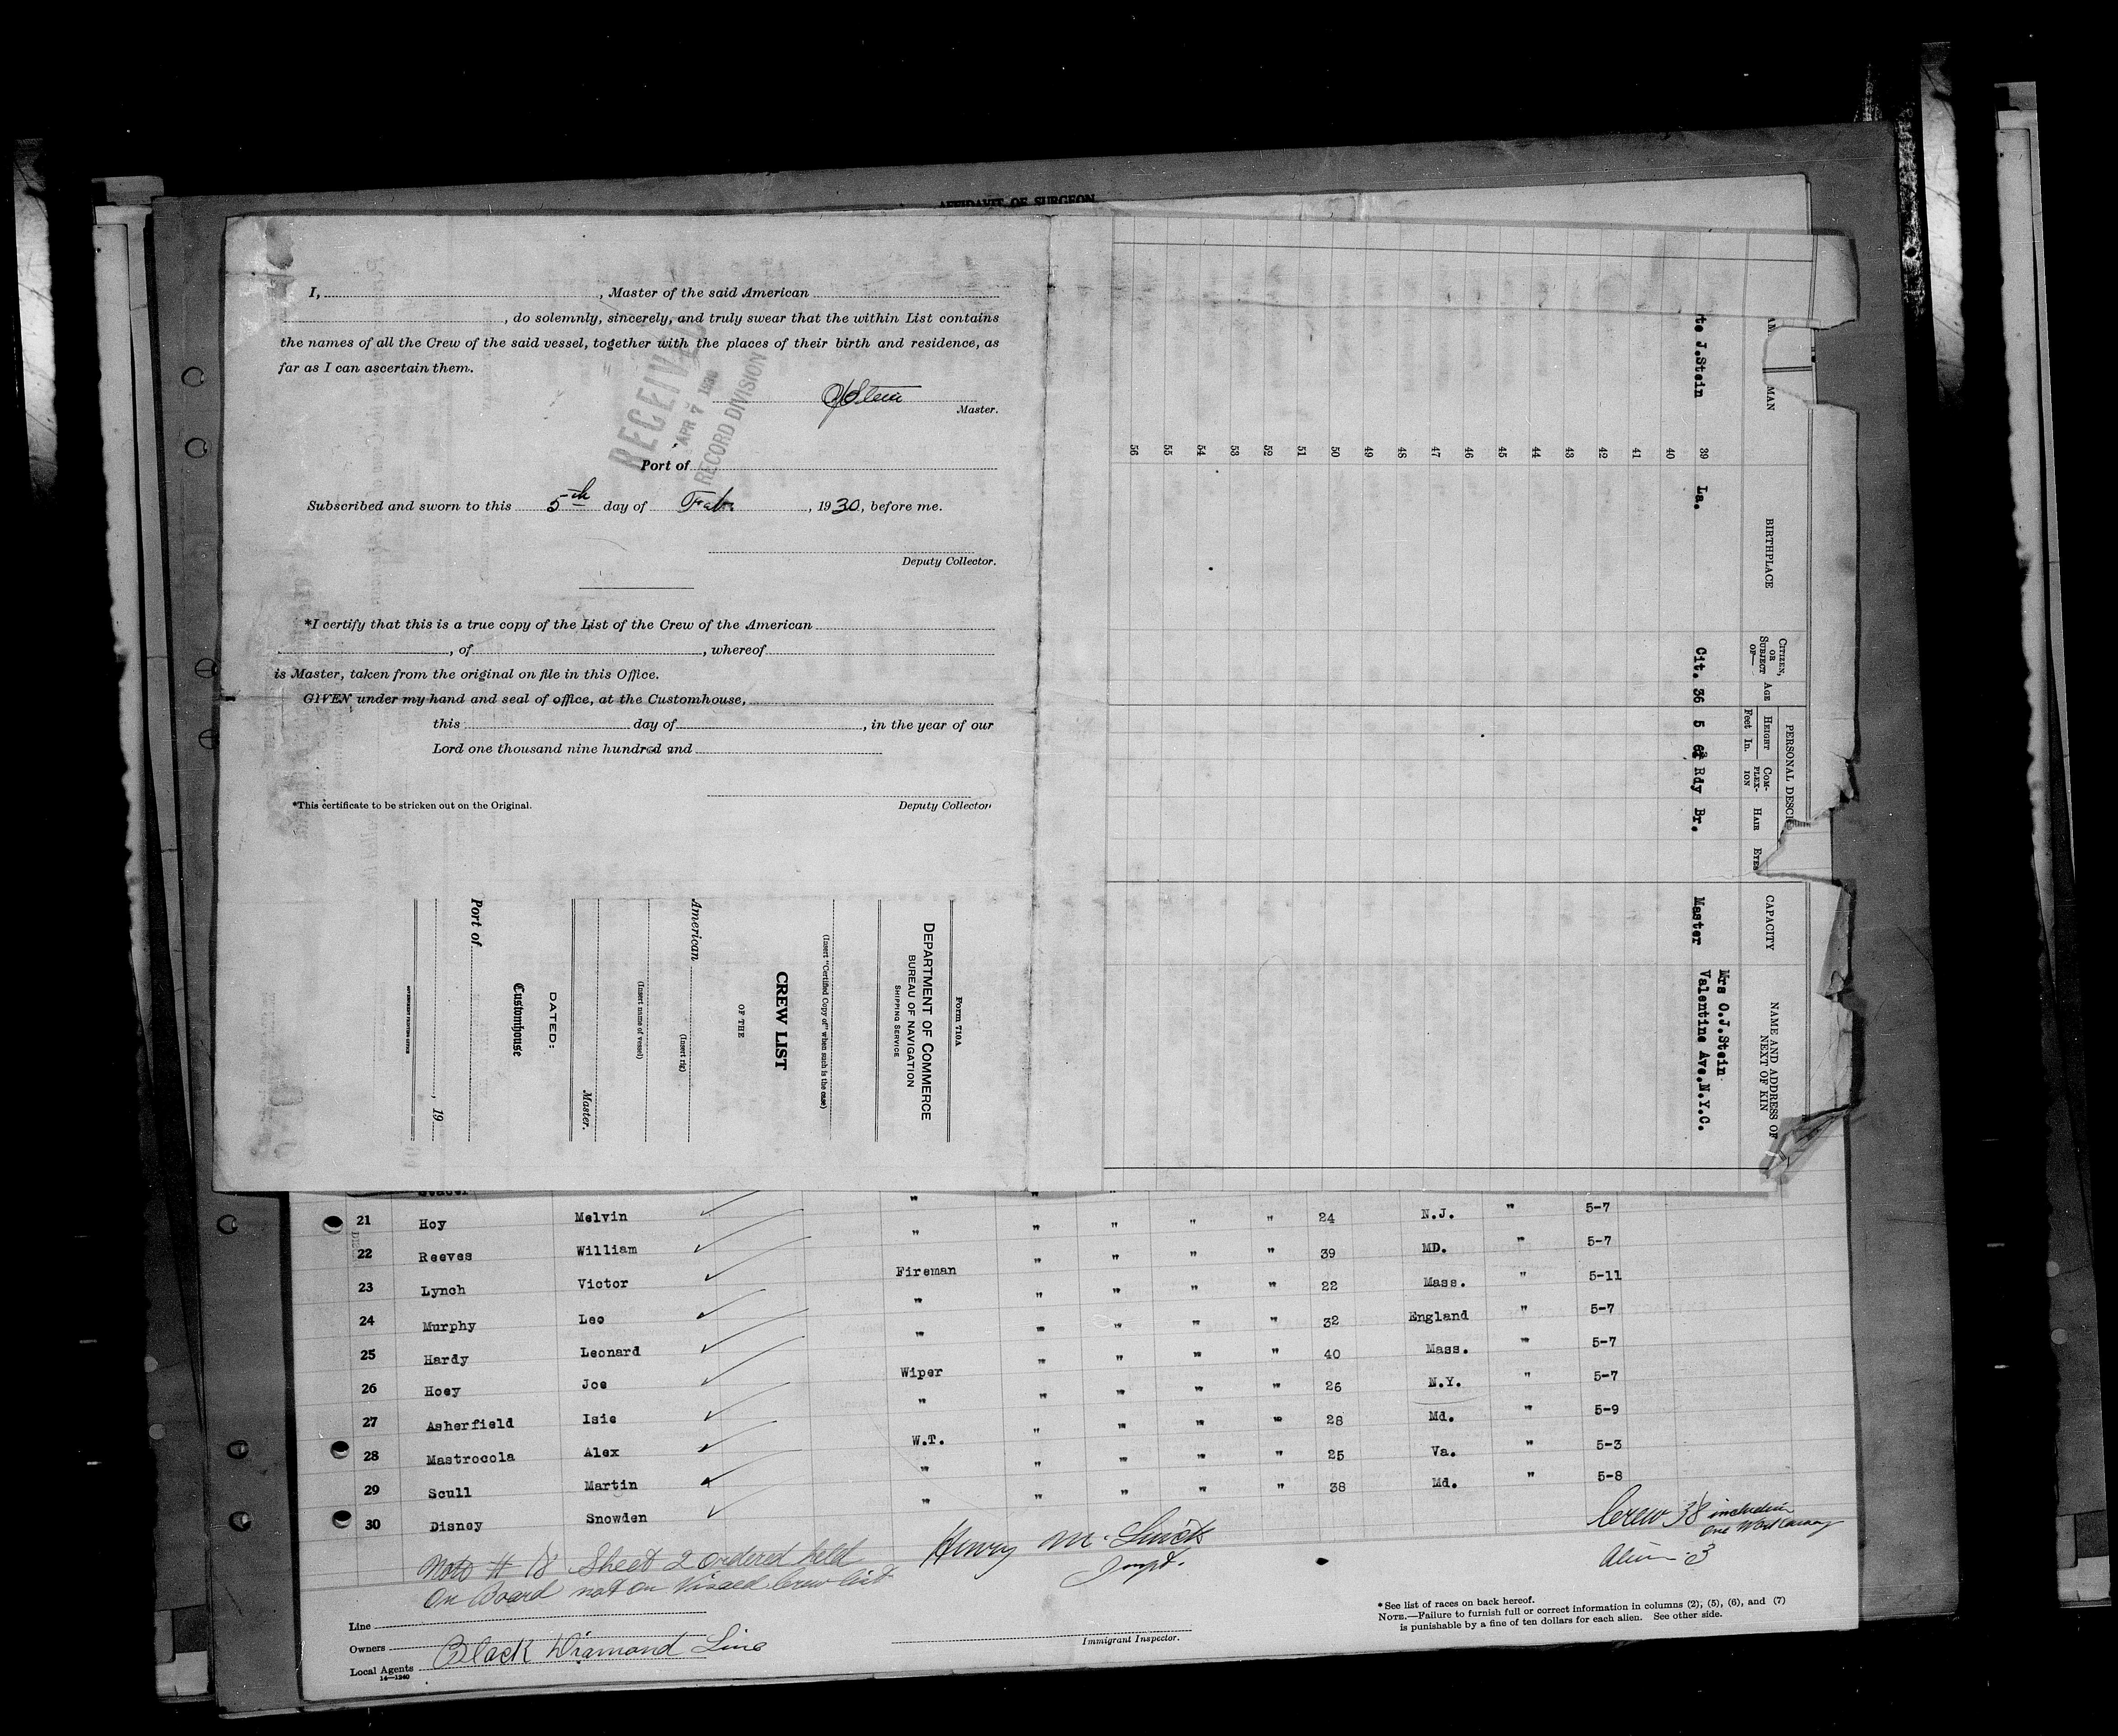 AFFIDAVIT OF SURGEON
I, , Master of the said American
, do solemnly, sincerely, and truly swear that the within List contains
the names of all the Crew of the said vessel, together with the places of their birth and residence, as
far as I can ascertain them.
OJStein
Master.
RECEIVED
APR 7 1930
RECORD DIVISION
Port of
Subscribed and sworn to this 5th day of Feb. , 1930, before me.
Deputy Collector.
*I certify that this is a true copy of the List of the Crew of the American
, of , whereof
is Master, taken from the original on file in this Office.
GIVEN under my hand and seal of office, at the Customhouse,
this day of , in the year of our
Lord one thousand nine hundred and
Deputy Collector
*This certificate to be stricken out on the Original.
Form 710A
DEPARTMENT OF COMMERCE
BUREAU OF NAVIGATION
SHIPPING SERVICE
(Insert "Certified Copy of" when such is the case)
CREW LIST
OF THE
American
(Insert rig)
(Insert name of vessel)
Master.
DATED:
Customhouse
Port of
, 19
GOVERNMENT PRINTING OFFICE
MAN BIRTHPLACE CITIZEN, OR SUBJECT OF— AGE PERSONAL DESCR
HEIGHT Feet In. COMPLEXION HAIR EYES CAPACITY NAME AND ADDRESS OF NEXT OF KIN
Mrs O.J.Stein
rte J.Stein 39 La. Cit. 36 5 6¾ Rdy Br. Master Valentine Ave.N.Y.C.
40
41
42
43
44
45
46
47
48
49
50
51
52
53
54
55
56
21 Hoy Melvin " " " " " 24 N.J. " 5-7
22 Reeves William " " " " " 39 MD. " 5-7
23 Lynch Victor Fireman " " " " 22 Mass. " 5-11
24 Murphy Leo " " " " " 32 England " 5-7
25 Hardy Leonard " " " " " 40 Mass. " 5-7
26 Hoey Joe Wiper " " " " 26 N.Y. " 5-7
27 Asherfield Isie " " " " " 28 Md. " 5-9
28 Mastrocola Alex W.T. " " " " 25 Va. " 5-3
29 Scull Martin " " " " " 38 Md. " 5-8
30 Disney Snowden "
Crew 38 including
one Workaway
Alien 3
Note # 18 Sheet 2 ordered held
on Board not on Visaed Crew list
Henry M.
Inspt.
Line
Owners
Local Agents Black Diamond Line
14—1240
Immigrant Inspector.
* See list of races on back hereof.
NOTE.—Failure to furnish full or correct information in columns (2), (5), (6), and (7)
is punishable by a fine of ten dollars for each alien. See other side.